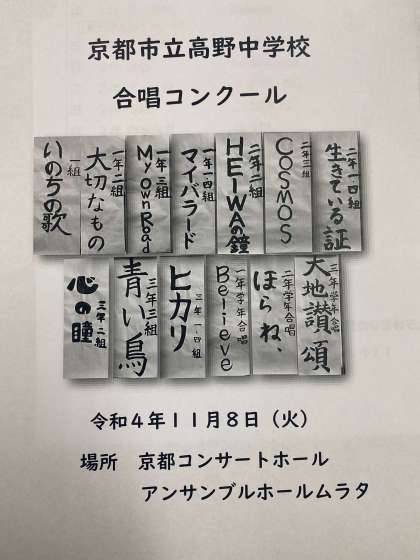 京都市立高野中学校
合唱コンクール
いのちの歌
一組
大切なもの
一年二組
My Own Road
一年三組
マイバラード
一年一四組
HEIWAの鐘
二年二組
COSMOS
二年三組
生きている証
二年一四組
心の瞳
三年二組
青い鳥
三年三組
ヒカリ
三年一四組
Believe
一年学年合唱
ほらね、
二年学年合唱
大地讃頌
三年学年合唱
令和4年11月8日（火）
場所　京都コンサートホール
アンサンブルホールムラタ